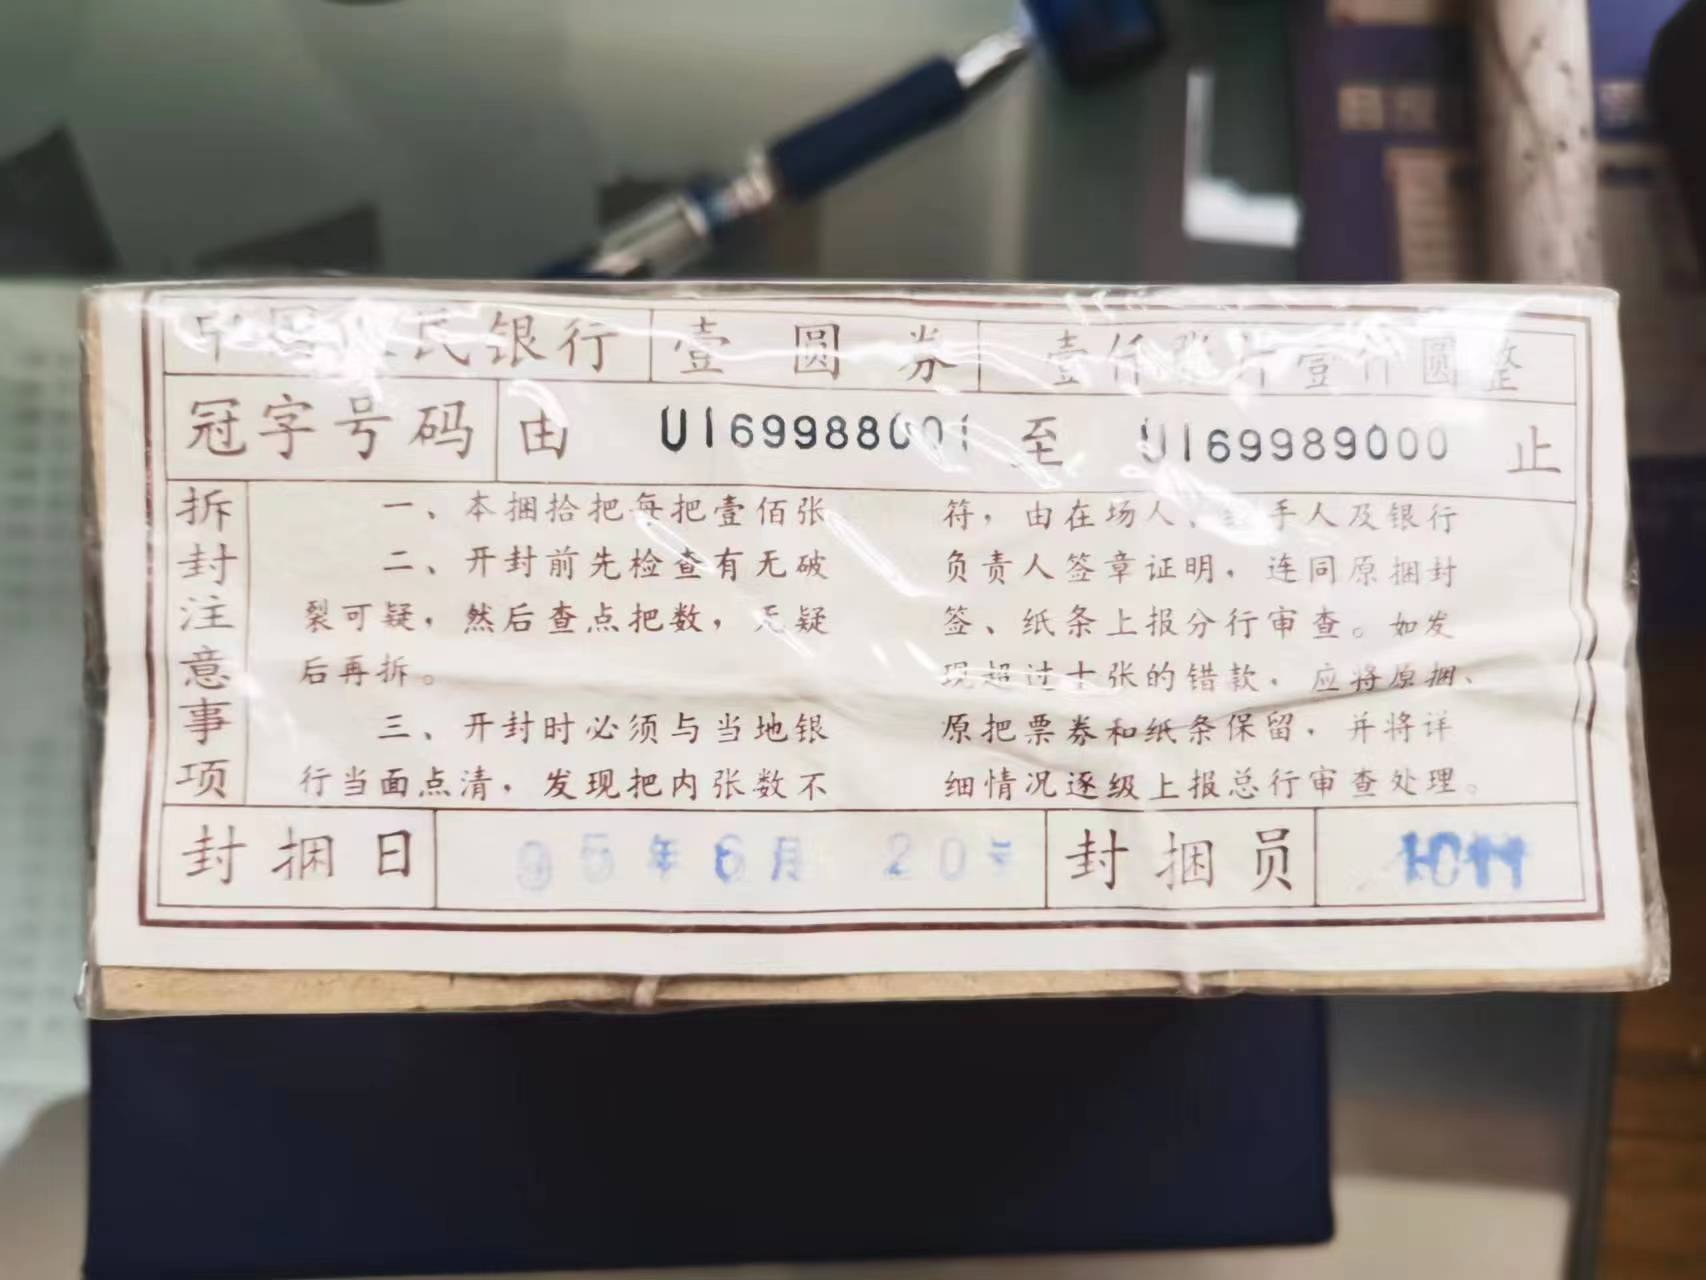 中国人民银行 壹圆券 壹仟张计壹仟圆整
冠字号码 由 UI69988001 至 UI69989000 止
拆封注意事项
一、本捆拾把每把壹佰张
二、开封前先检查有无破
裂可疑，然后查点把数，无疑
后再拆。
三、开封时必须与当地银
行当面点清，发现把内张数不
符，由在场人、经手人及银行
负责人签章证明，连同原捆封
签、纸条上报分行审查。如发
现超过十张的错款，应将原捆、
原把票券和纸条保留，并将详
细情况逐级上报总行审查处理。
封捆日 95年6月20 封捆员 1011